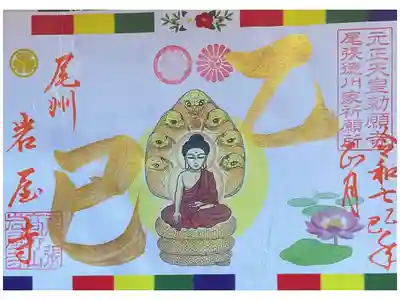 元正天皇勅願寺
尾張徳川家祈願所
令和七巳年
正月
乙
巳
尾州
岩屋寺